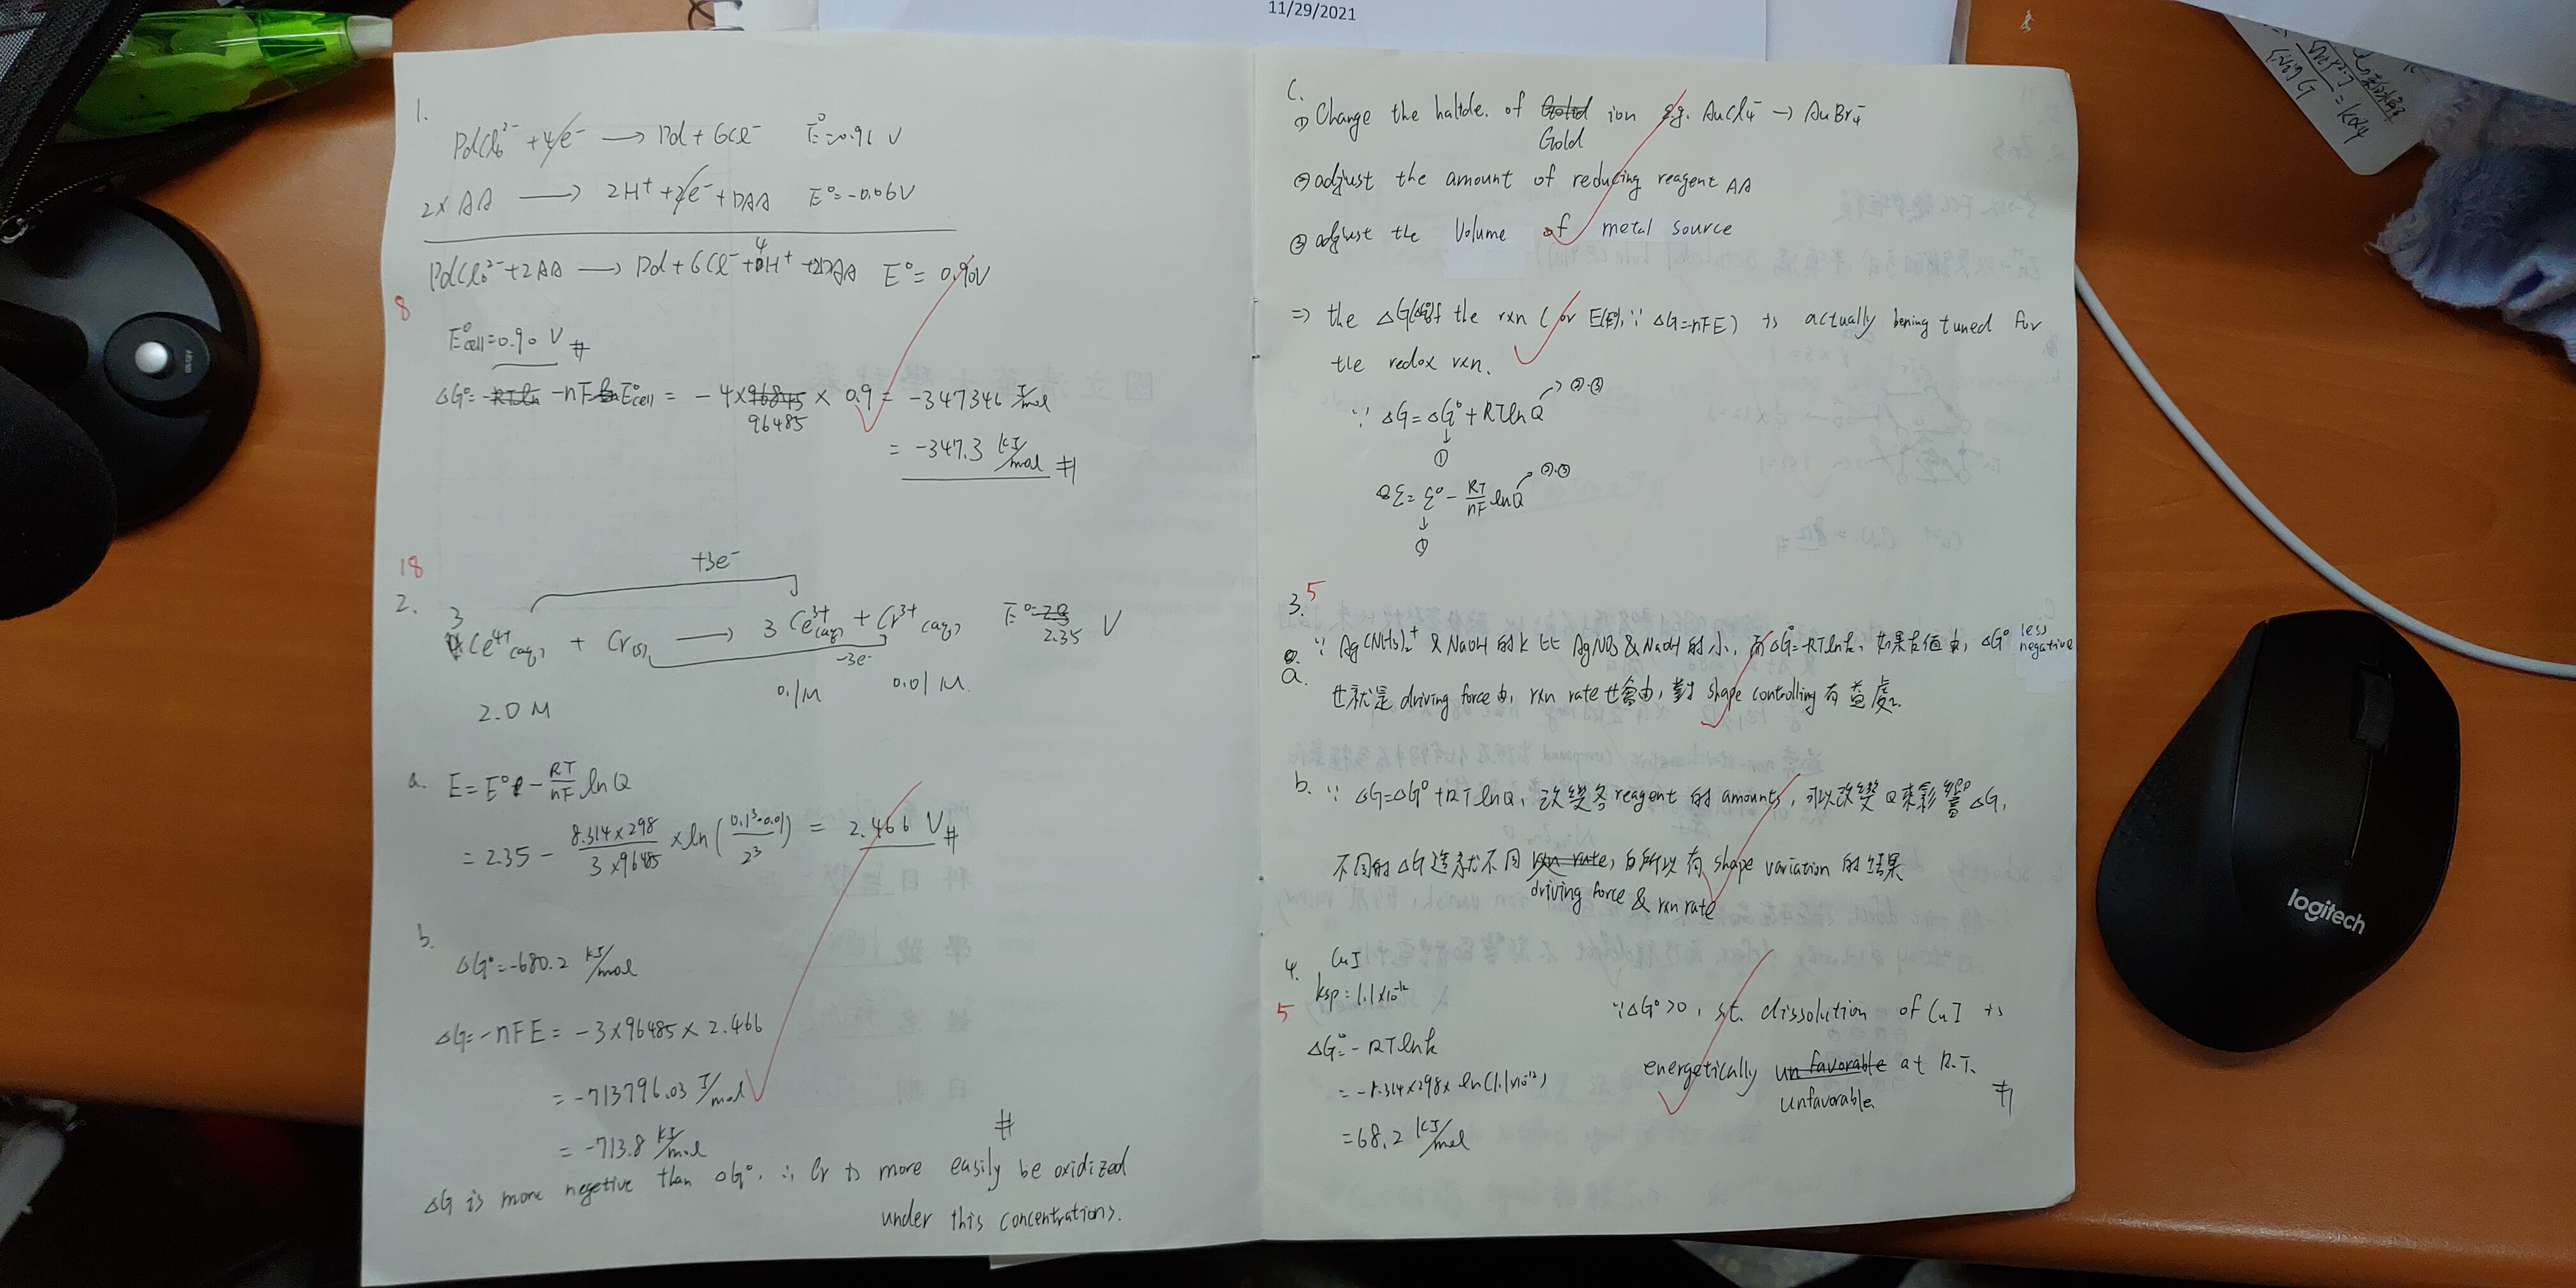 11/29/2021
1.
PdCl₆²⁻ + 4e⁻ → Pd + 6Cl⁻ E°=0.96 V
2x AA → 2H⁺ + 2e⁻ + DAA E°=-0.06V
PdCl₆²⁻ + 2AA → Pd + 6Cl⁻ + 4H⁺ + 2DAA E°= 0.90V
8
E°cell=0.90 V #
ΔG°= -RTln -nF E°cell = -4×96845 × 0.9 = -347346 J/mol
96485
= -347.3 kJ/mol #
18
+3e⁻
2. 3Ce⁴⁺(aq) + Cr(s) → 3Ce³⁺(aq) + Cr³⁺(aq) E°= 2.35 V
-3e⁻
2.0 M 0.1M 0.01 M.
a. E = E° - RT/nF lnQ
= 2.35 - 8.314×298/3×96485 × ln(0.1³·0.01/2³) = 2.466 V #
b.
ΔG°=-680.2 kJ/mol
ΔG=-nFE = -3×96485×2.466
= -713796.03 J/mol
= -713.8 kJ/mol #
ΔG is more negetive than ΔG°, ∴ Cr is more easily be oxidized
under this concentrations.
C.
① Change the halide. of Gold ion e.g. AuCl₄⁻ → AuBr₄⁻
② adjust the amount of reducing reagent AA
③ adjust the Volume of metal source
⇒ the ΔG(ΔG°)of the rxn (or E(E°), ∵ ΔG=-nFE) is actually bening tuned for
the redox rxn.
②.③
∵ ΔG = ΔG° + RTlnQ
①
②.③
ε = ε° - RT/nF lnQ
①
5
3.
a. ∵ Ag(NH₃)₂⁺ & NaOH 的 k 比 AgNO₃ & NaOH 的小, 而 ΔG°=-RTlnk, 如果k值小, ΔG° less negative
也就是 driving force 小, rxn rate 也會小, 對 shape controlling 有益處.
b. ∵ ΔG=ΔG°+RTlnQ, 改變各 reagent 的 amounts, 可以改變 Q 來影響 ΔG,
不同的 ΔG 造就不同 rxn rate, 所以有 shape variation 的結果
driving force & rxn rate
4. CuI
ksp = 1.1×10⁻¹²
5
ΔG°=-RTlnk
= -8.314×298× ln(1.1×10⁻¹²)
= 68.2 kJ/mol
∵ΔG°>0, st. dissolution of CuI is
energetically unfavorable at R.T. #
Unfavorable.
logitech